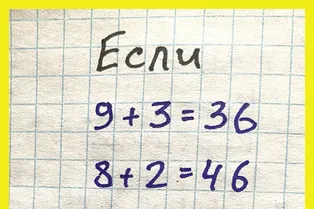 Если
9+3=36
8+2=46